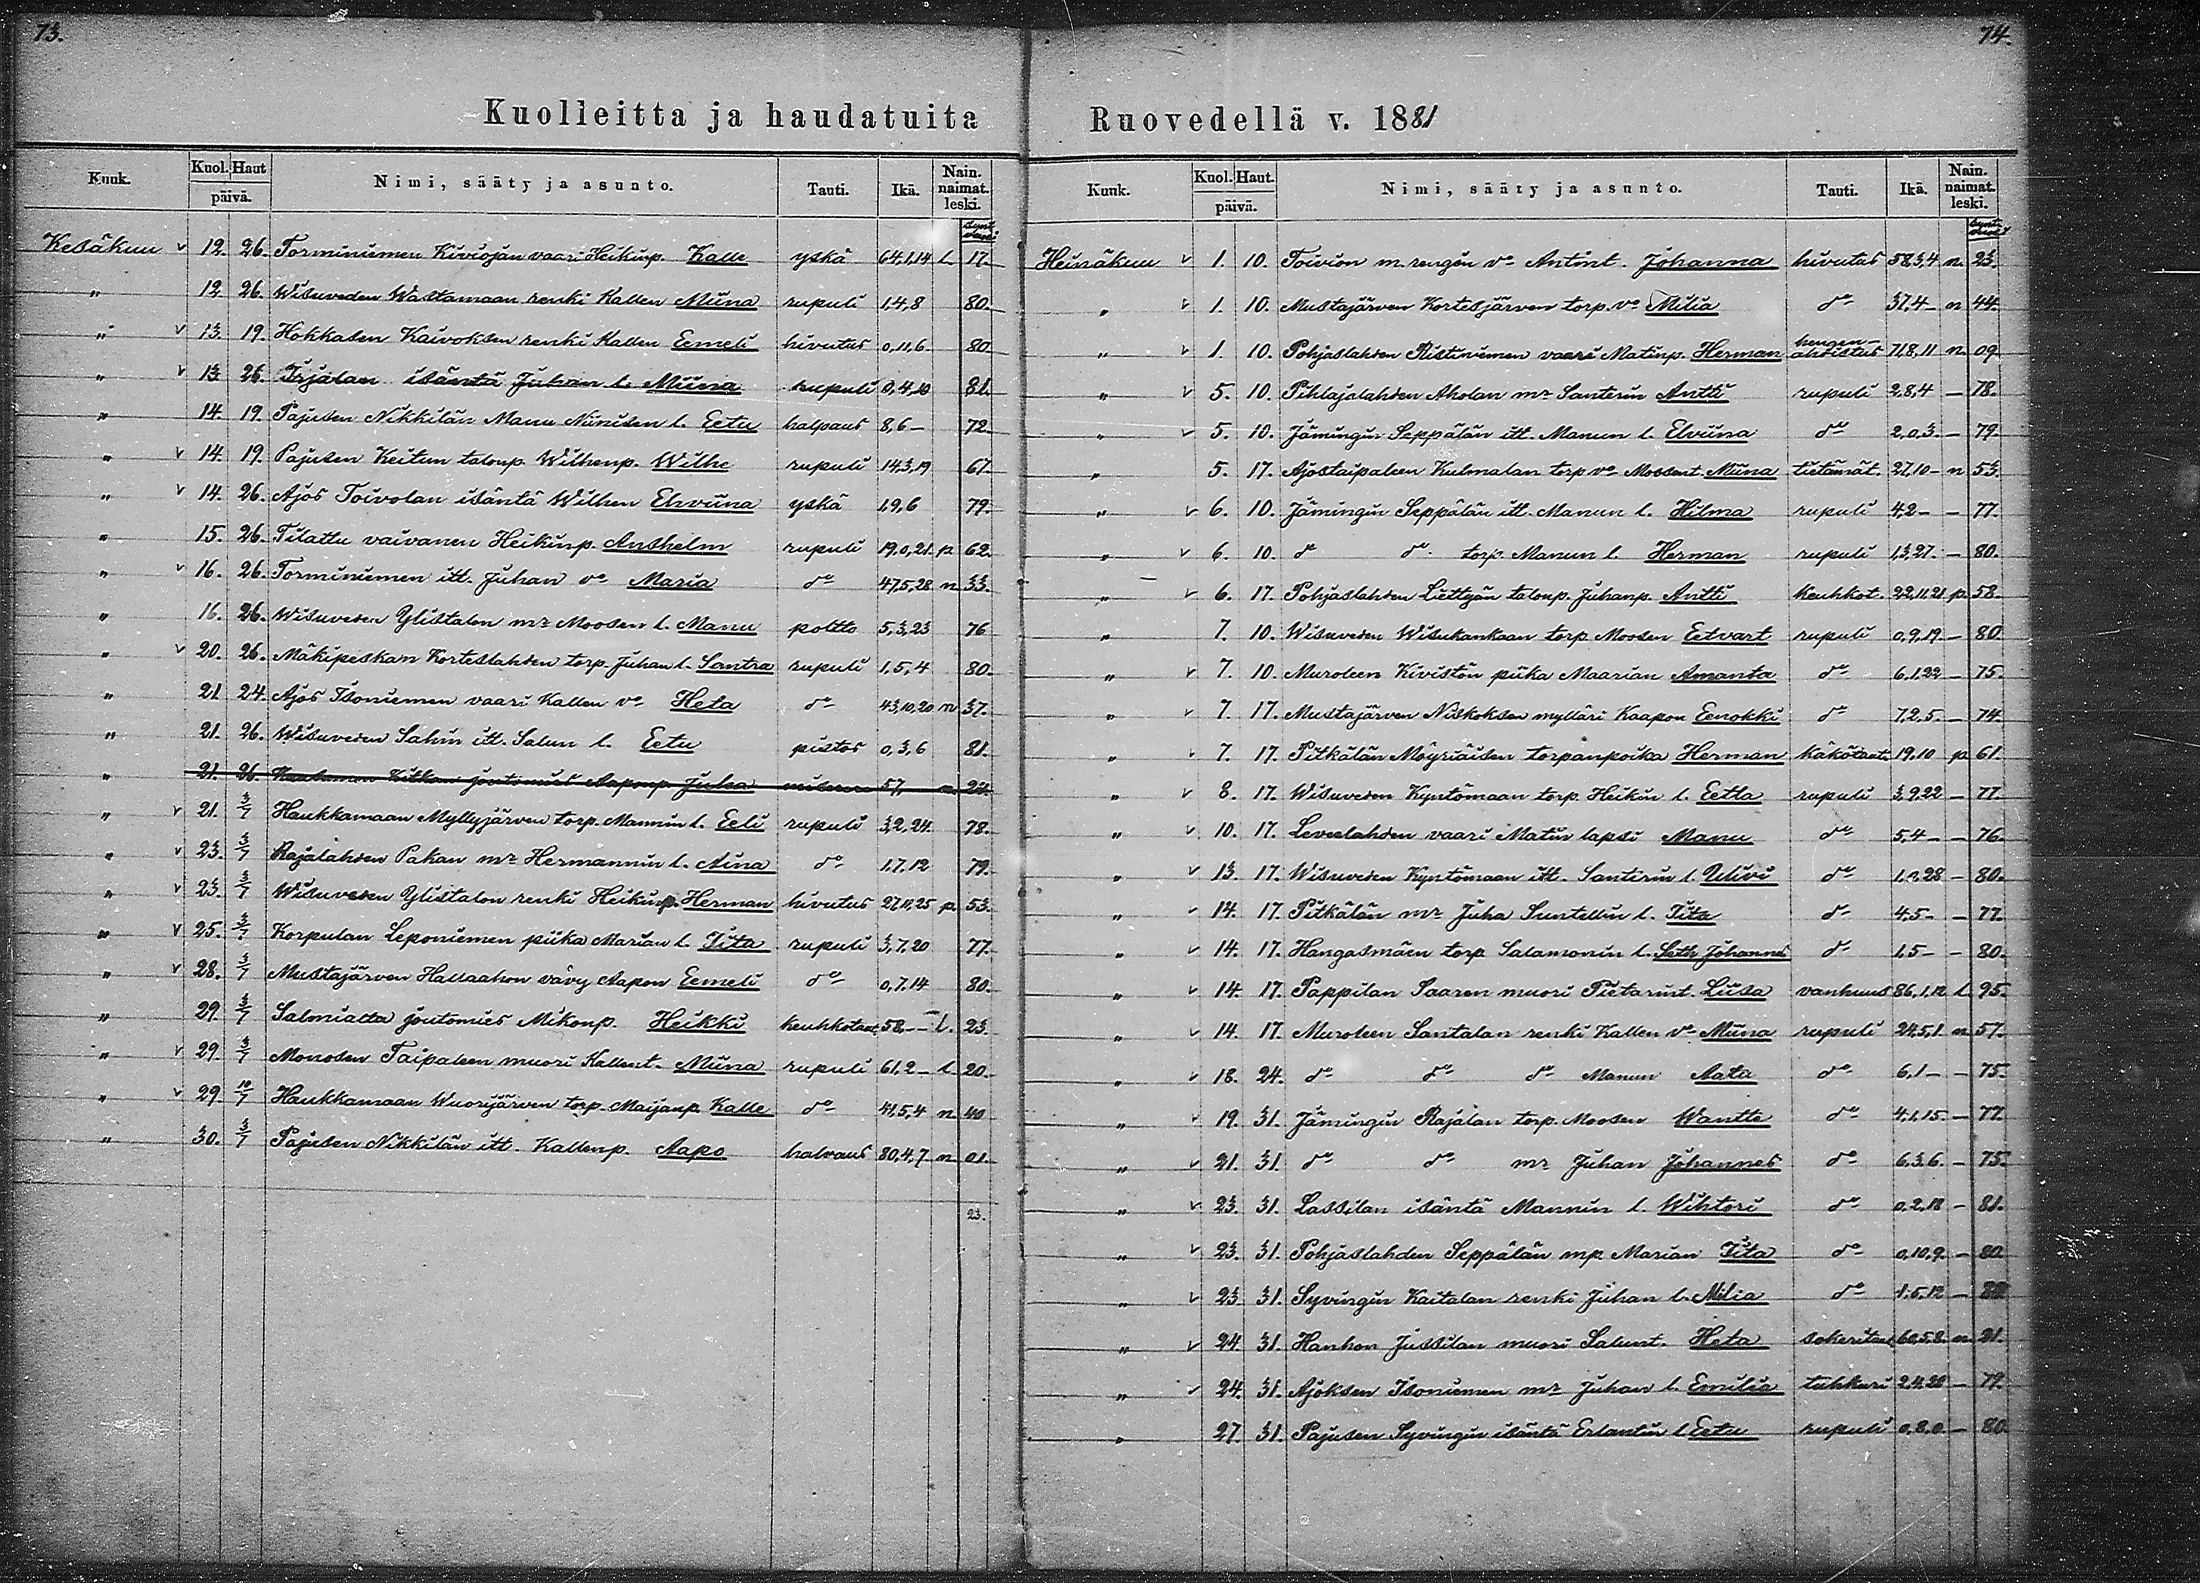 73.
Kuolleitta ja haudatuita
Kuuk. Kuol. Haut päivä. Nimi, sääty ja asunto. Tauti. Ikä. Nain. naimat. leski.
synt. vuosi
Kesäkuu v 12. 26. Torminiemen Kiviojan vaari Heikinp. Kalle yskä 64,1,14 l. 17.
" 12. 26. Wisuveden Wästamaan renki Kallen Miina rupuli 1,4,8 80.
" v 13. 19. Hokkasen Kaivoksen renki Kallen Eemeli hivutus 0,11,6. 80
" v 13. 26. Irjalan isäntä Juhan l. Miina rupuli 0,4,10 81.
" 14. 19. Pajusen Nikkilän Manu Niinisen l. Eetu halpaus 8,6- 72.
" v 14. 19. Pajusen Keitun taloup. Wilhenp. Wilhe rupuli 14,3,19 67.
" v 14. 26. Ajos Toivolan isäntä Wilhen Elwiina yskä 1,9,6 79.
" 15. 26. Tilattu vaivanen Heikinp. Anshelm rupuli 19,0,21. p 62.
" v 16. 26. Torminiemen itt. Juhan vo Maria do 47,5,28 n 33.
" 16. 26. Wisuveden Ylistalon mr Moosen l. Manu poltto 5,3,23 76
" v 20. 26. Mäkipeskan Korteslahden torp. Juhan l. Santra rupuli 1,5,4 80.
" 21 24. Ajos Isoniemen vaari Kallen vo Heta do 43,10,20 n 37.
" 21. 26. Wisuveden Sahin itt. Salun l. Eetu pistos 0,3,6 81.
" 21. 26. joutomies Aaponp. Juha 57,
" v 21. 3/7 Haukkamaan Myllyjärven torp. Mannin l. Eeli rupuli 3,2,24. 78.
" v 23. 3/7 Rajalahden Pakan mr Hermannin l. Aina do 1,7,12 79.
" v 23. 3/7 Wisuveden Ylistalon renki Heikinp. Herman hivutus 27,11,25 p. 53.
" v 25. 3/7 Korpulan Leponiemen piika Marian l. Iita rupuli 3,7,20 77.
" v 28. 3/7 Mustajärven Hallaahon vävy Aapon Eemeli do 0,7,14 80.
" 29. 3/7 Salmialta joutomies Mikonp. Heikki keuhkotaut. 58-- l. 23.
" v 29. 3/7 Monosen Taipaleen muori Kallent. Miina rupuli 61,2- l. 20.
" v 29 10/7 Haukkamaan Wuorijärven torp. Maijanp. Kalle do 41,5,4 n 40
" 30. 3/7 Pajusen Nikkilän itt. Kallenp. Aapo halvaus 80,4,7 n 01.
23.
74.
Ruovedellä v. 1881
Kuuk. Kuol. Haut. päivä. Nimi, sääty ja asunto. Tauti. Ikä. Nain. naimat. leski.
synt. vuosi
Heinäkuu v 1. 10. Toivion m. rengin vo Antint. Johanna hivutus 58,3,4 n. 23.
" v 1. 10. Mustajärven Kortesjärven torp. vo Milia do 37,4- n 44.
" v 1. 10. Pohjaslahden Ristiniemen vaari Matinp. Herman hengen-ahdistus 71,8,11 n. 09.
" v 5. 10. Pihlajalahden Aholan mr Santerin Antti rupuli 2,8,4 - 78.
" v 5. 10. Jämingin Seppälän itt. Manun l. Elviina do 2,0,3. - 79.
" 5. 17. Ajostaipaleen Kulmalan torp vo Moosent. Miina tietämät. 27,10- n 53.
" v 6. 10. Jämingin Seppälän itt. Manun l. Hilma rupuli 4,2- - 77.
" v 6. 10. do do torp. Manun l. Herman rupuli 1,3,27. - 80.
" v 6. 17. Pohjaslahden Liettyän taloup. Juhanp. Antti keuhkot. 22,11,21 p 58.
" 7. 10. Wisuveden Wisukankaan torp Moosen Eetvart rupuli 0,9,19 - 80
" v 7. 10. Muroleen Kivistön piika Maarian Amanta do 6,1,22 - 75.
" v 7. 17. Mustajärven Niskoksen mylläri Kaapon Eenokki do 7,2,5. - 74.
" v 7. 17. Pitkälän Möyriäisen torpanpoika Herman käkötaut. 19,10 p 61.
" v 8. 17. Wisuveden Kyntömaan torp. Heikin l. Eetla rupuli 3,9,22 - 77.
" v 10. 17. Leveelahden vaari Matin lapsi Manu do 5,4- - 76.
" v 13. 17. Wisuveden Kyntömaan itt. Santerin l. do 28 - 80.
" v 14. 17. Pitkälän mr Juha Suntellin l. Iita do 4,5- - 77.
" v 14. 17. Hangasmäen torp Salamonin l. Seth Johannes do 1,5- - 80.
" v 14. 17. Pappilan Saaren muori Pietarint. Liisa vanhuus 86,1,12 l. 95.
" v 14. 17. Muroleen Santalan renki Kallen vo Miina rupuli 24,5,1 n 57.
" v 18. 24. do do do Manun Aata do 6,1- - 75.
" v 19. 31. Jämingin Rajalan torp. Moosen Wantte do 4,1,15. - 77.
" v 21. 31. do do mr Juhan Johannes do 6,3,6. - 75.
" v 23. 31. Lassilan isäntä Mannin l. Wihtori do 0,2,18 - 81.
" v 23. 31. Pohjaslahden Seppälän mp. Marian Iita do 0,10,9. - 80
" v 23 31. Syvingin Kaitalan renki Juhan l. Milia do 1,5,12 - 80
" v 24. 31. Hanhon Jussilan muori Salunt. Heta sokeritaut. 60,5,8. n 21.
" v 24. 31. Ajoksen Isoniemen mr Juhan l. Emilia tuhkuri 2,4,20 - 79.
" 27. 31. Pajusen Syvingin isäntä Erlantin l Eetu rupuli 0,8,0. - 80.